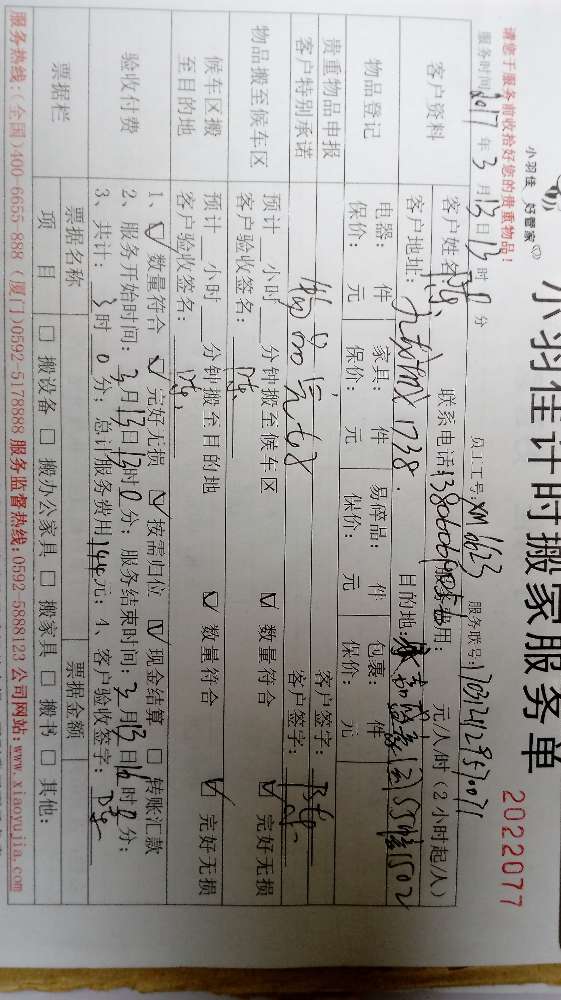 小羽佳 好管家
小羽佳计时搬家服务单
2022077
请您于服务前收拾好您的贵重物品！
服务时间：2017年3月13日13时 分 员工工号：XM1623 服务联号：
客户资料
客户姓名： 联系电话： 服务费用： 元/人/时（2小时起/人）
客户地址： 1738. 目的地：
物品登记
电器： 件 家具： 件 易碎品： 件 包裹： 件
保价： 元 保价： 元 保价： 元 保价： 元
贵重物品申报 客户签字：
客户特别承诺 客户签字：
物品搬至候车区
预计 小时 分钟搬至候车区 ☑ 数量符合 ☑ 完好无损
客户验收签名：
候车区搬至目的地
预计 小时 分钟搬至目的地 ☑ 数量符合 ☑ 完好无损
客户验收签名：
验收付费
1、☑ 数量符合 ☑ 完好无损 ☑ 按需归位 ☑ 现金结算 □ 转账汇款
2、服务开始时间：3月13日13时0分；服务结束时间：3月13日16时0分；
3、共计：3时0分；总计服务费用144元；4、客户验收签字：
票据栏
票据名称 票据金额
项 目 □ 搬设备 □ 搬办公家具 □ 搬家具 □ 搬书 □ 其他：
服务热线：(全国)400-6655-888（厦门)0592-5178888 服务监督热线：0592-5888123 公司网站：www.xiaoyujia.com